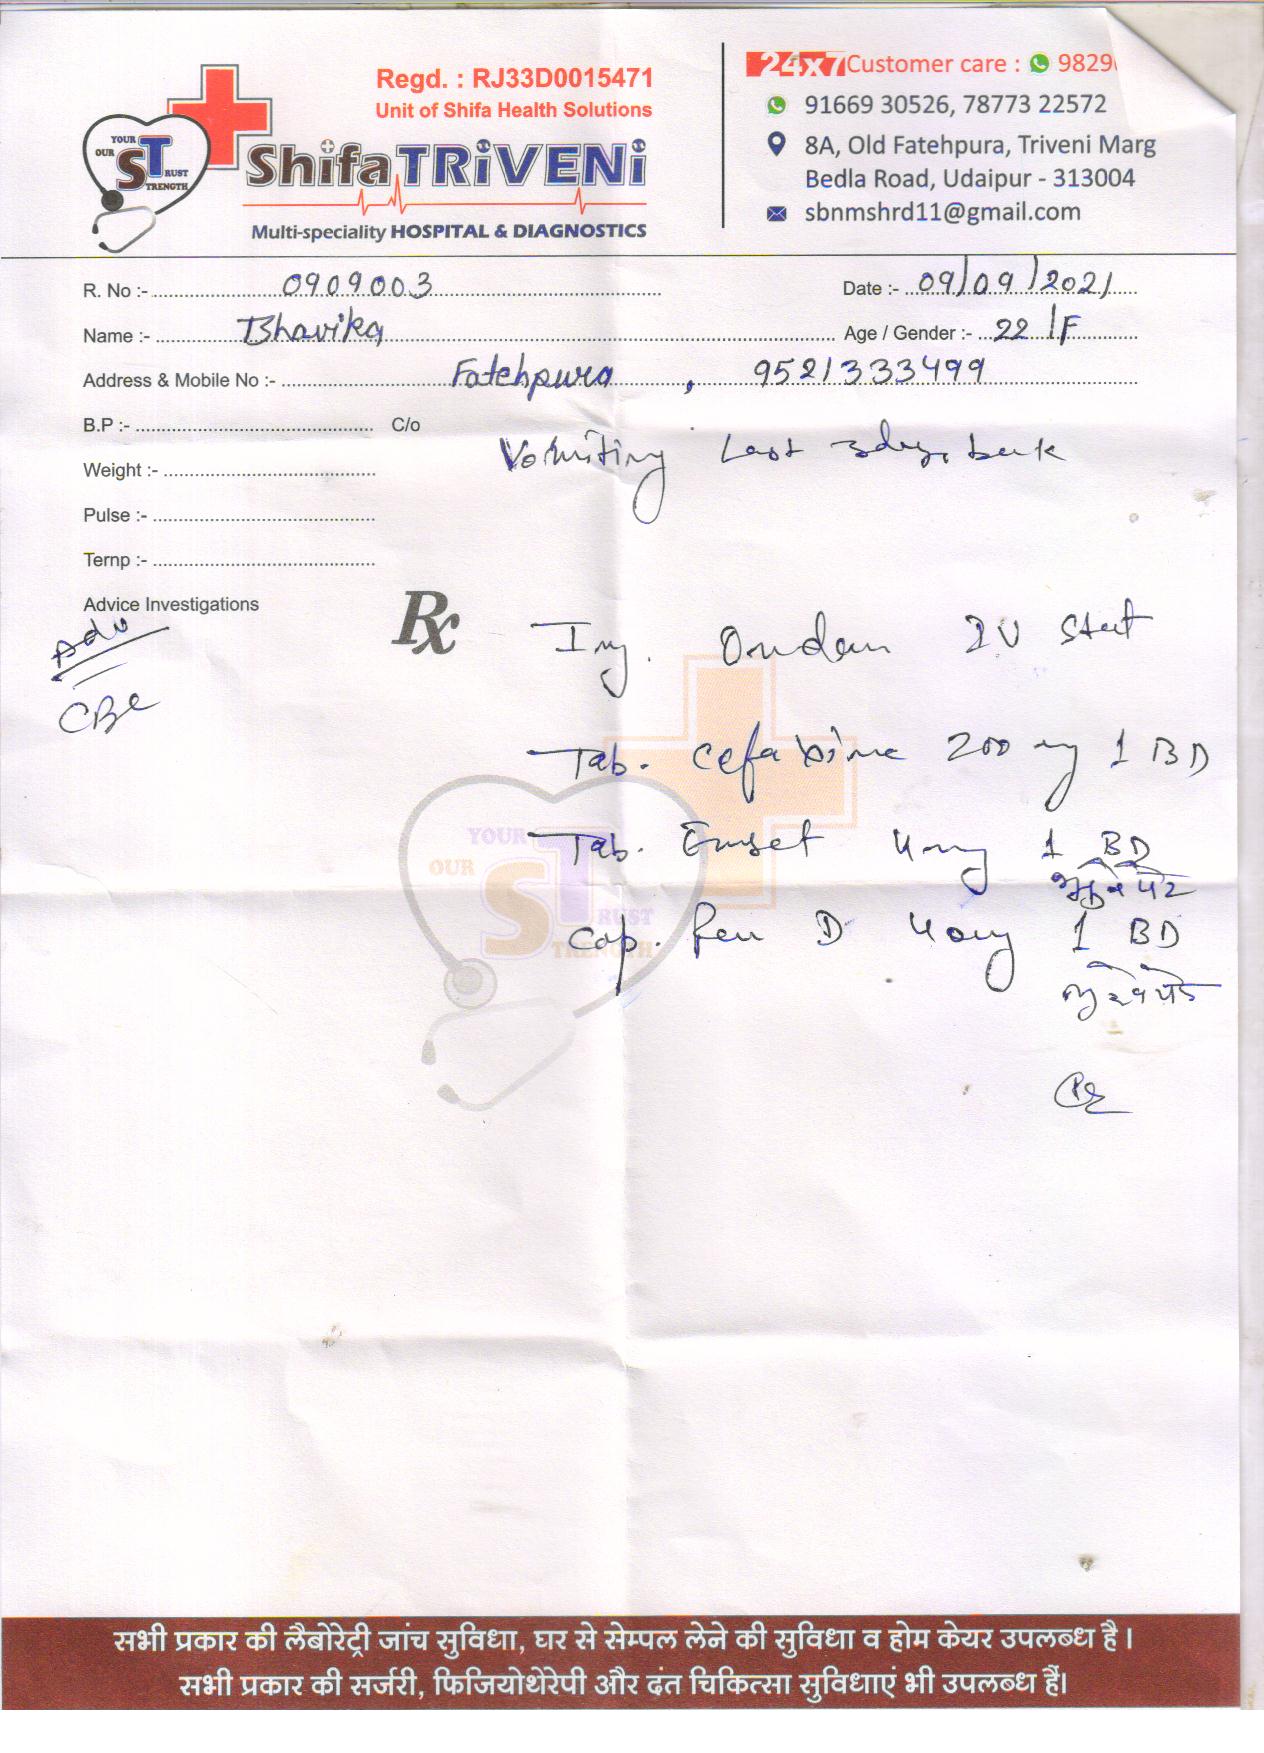 Regd. : RJ33D0015471
Unit of Shifa Health Solutions
YOUR OUR ST RUST TRENGTH
ShifaTRiVENi
Multi-speciality HOSPITAL & DIAGNOSTICS
24x7 Customer care : 9829
91669 30526, 78773 22572
8A, Old Fatehpura, Triveni Marg
Bedla Road, Udaipur - 313004
sbnmshrd11@gmail.com
R. No :- 0909003 Date :- 09/09/2021
Name :- Bhavika Age / Gender :- 22/F
Address & Mobile No :- Fatehpura, 9521333499
B.P :- C/o
Vomiting Last 3days back
Weight :-
Pulse :-
Ternp :-
Advice Investigations
Adv
CBC
Rx
Inj. Ondem IV Stat
Tab. Cefaxime 200 mg 1 BD
Tab. Emset 4mg 1 BD
YOUR
OUR ST RUST
TRENGTH
Cap. Pan D 40mg 1 BD
सभी प्रकार की लैबोरेट्री जांच सुविधा, घर से सेम्पल लेने की सुविधा व होम केयर उपलब्ध है।
सभी प्रकार की सर्जरी, फिजियोथेरेपी और दंत चिकित्सा सुविधाएं भी उपलब्ध हैं।